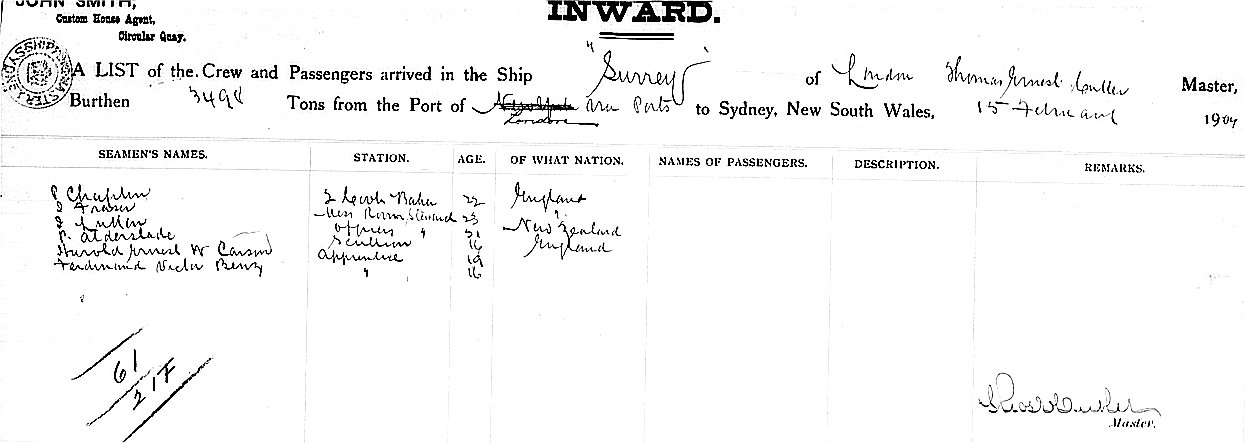 JOHN SMITH,
Custom House Agent,
Circular Quay.
INWARD.
A LIST of the Crew and Passengers arrived in the Ship "Surrey" of London Thomas Ernest Cutler Master,
Burthen 3498 Tons from the Port of New York via Ports to Sydney, New South Wales, 15 February 1904
London
SEAMEN'S NAMES. STATION. AGE. OF WHAT NATION. NAMES OF PASSENGERS. DESCRIPTION. REMARKS.
Chaplin 2 Cook Baker 22 England
Fraser Mess Room Steward 23 "
Officers " 21 New Zealand
P. Alderslade Scullion 16 England
Harold Ernest W Carson Apprentice 19
Ferdinand Victor " 16
61
21F
Master.